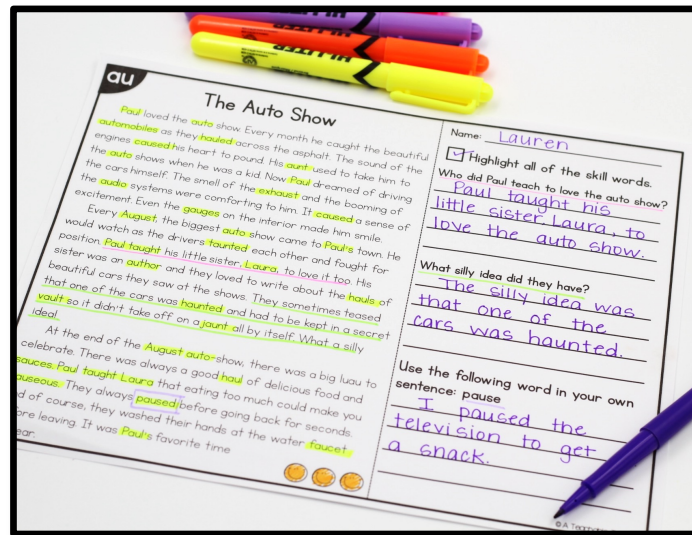 HI-LITER
HI-LITER
au
The Auto Show
Paul loved the auto show. Every month he caught the beautiful
automobiles as they hauled across the asphalt. The sound of the
engines caused his heart to pound. His aunt used to take him to
the auto shows when he was a kid. Now Paul dreamed of driving
the cars himself. The smell of the exhaust and the booming of
the audio systems were comforting to him. It caused a sense of
excitement. Even the gauges on the interior made him smile.
Every August, the biggest auto show came to Paul's town. He
would watch as the drivers taunted each other and fought for
position. Paul taught his little sister, Laura, to love it too. His
sister was an author and they loved to write about the hauls of
beautiful cars they saw at the shows. They sometimes teased
that one of the cars was haunted and had to be kept in a secret
vault so it didn't take off on a jaunt all by itself. What a silly
idea!
At the end of the August auto-show, there was a big luau to
celebrate. There was always a good haul of delicious food and
sauces. Paul taught Laura that eating too much could make you
auseous. They always paused before going back for seconds.
d of course, they washed their hands at the water faucet
ore leaving. It was Paul's favorite time
ear.
Name: Lauren
Highlight all of the skill words.
Who did Paul teach to love the auto show?
Paul taught his
little sister Laura, to
love the auto show.
What silly idea did they have?
The silly idea was
that one of the
cars was haunted.
Use the following word in your own
sentence: pause
I paused the
television to get
a snack.
© A Teachable